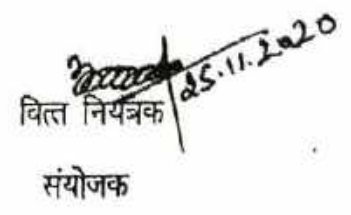 25.11.2020
वित्त नियंत्रक
संयोजक